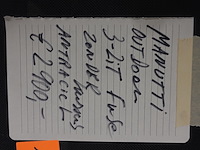 MANUTTI
OUTDOOR
3-ZIT FUSE
ZONDER kussens
ANTRACIET
€ 2900,-